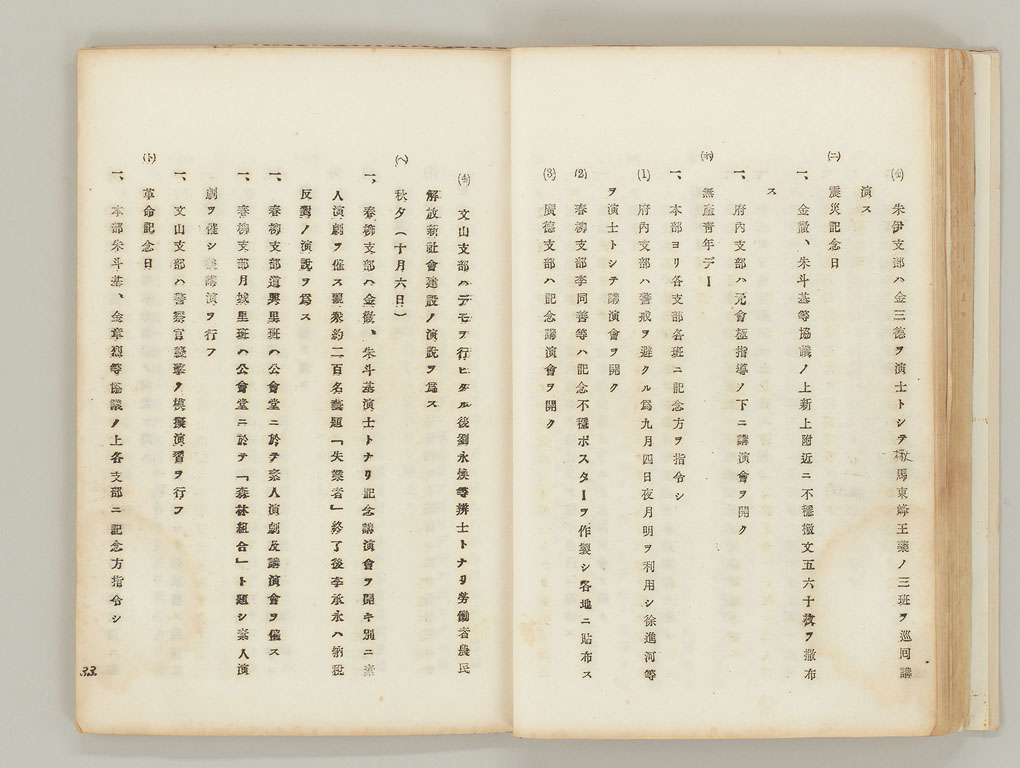 朱伊支部ハ金三德ヲ演士トシテ馬東峰王藥ノ三班ヲ巡囘講
演ス
㈡ 震災記念日
一、金徹、朱斗基等協議ノ上新上附近ニ不穩檄文五六十枚ヲ撒布
ス
一、府內支部ハ元會極指導ノ下ニ講演會ヲ開ク
㈭ 無產靑年デー
一、本部ヨリ各支部各班ニ記念方ヲ指令シ
(1) 府內支部ハ警戒ヲ避クル爲九月四日夜月明ヲ利用シ徐進河等
ヲ演士トシテ講演會ヲ開ク
(2) 春柳支部李同善等ハ記念不穩ポスターヲ作製シ各地ニ貼布ス
(3) 廣德支部ハ記念講演會ヲ開ク
(4) 文山支部ハデモヲ行ヒタル後劉永煥等辨士トナリ勞働者農民
解放新社會建設ノ演說ヲ爲ス
(ヘ) 秋夕(十月六日)
一、春柳支部ハ金徹、朱斗基演士トナリ記念講演會ヲ開キ別ニ素
人演劇ヲ催ス聽衆約二百名藝題「失業者」終了後李承永ハ納稅
反對ノ演說ヲ爲ス
一、春柳支部道興里班ハ公會堂ニ於テ素人演劇及講演會ヲ催ス
一、春柳支部月城里班ハ公會堂ニ於テ「森林組合」ト題シ素人演
劇ヲ催シ後講演ヲ行フ
一、文山支部ハ警察官襲擊ノ模擬演習ヲ行フ
(ト) 革命記念日
一、本部朱斗基、金章烈等協議ノ上各支部ニ記念方指令シ
33